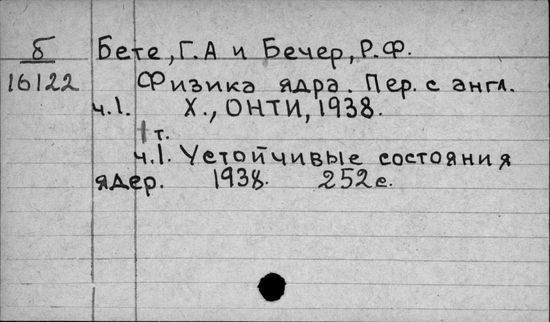 Б Бете, Г.А и Бечер, Р.Ф.
16122 Физика ядра. Пер. с англ.
ч.1. Х., ОНТИ, 1938.
1 т.
ч.1. Устойчивые состояния
ядер. 1938. 252 с.